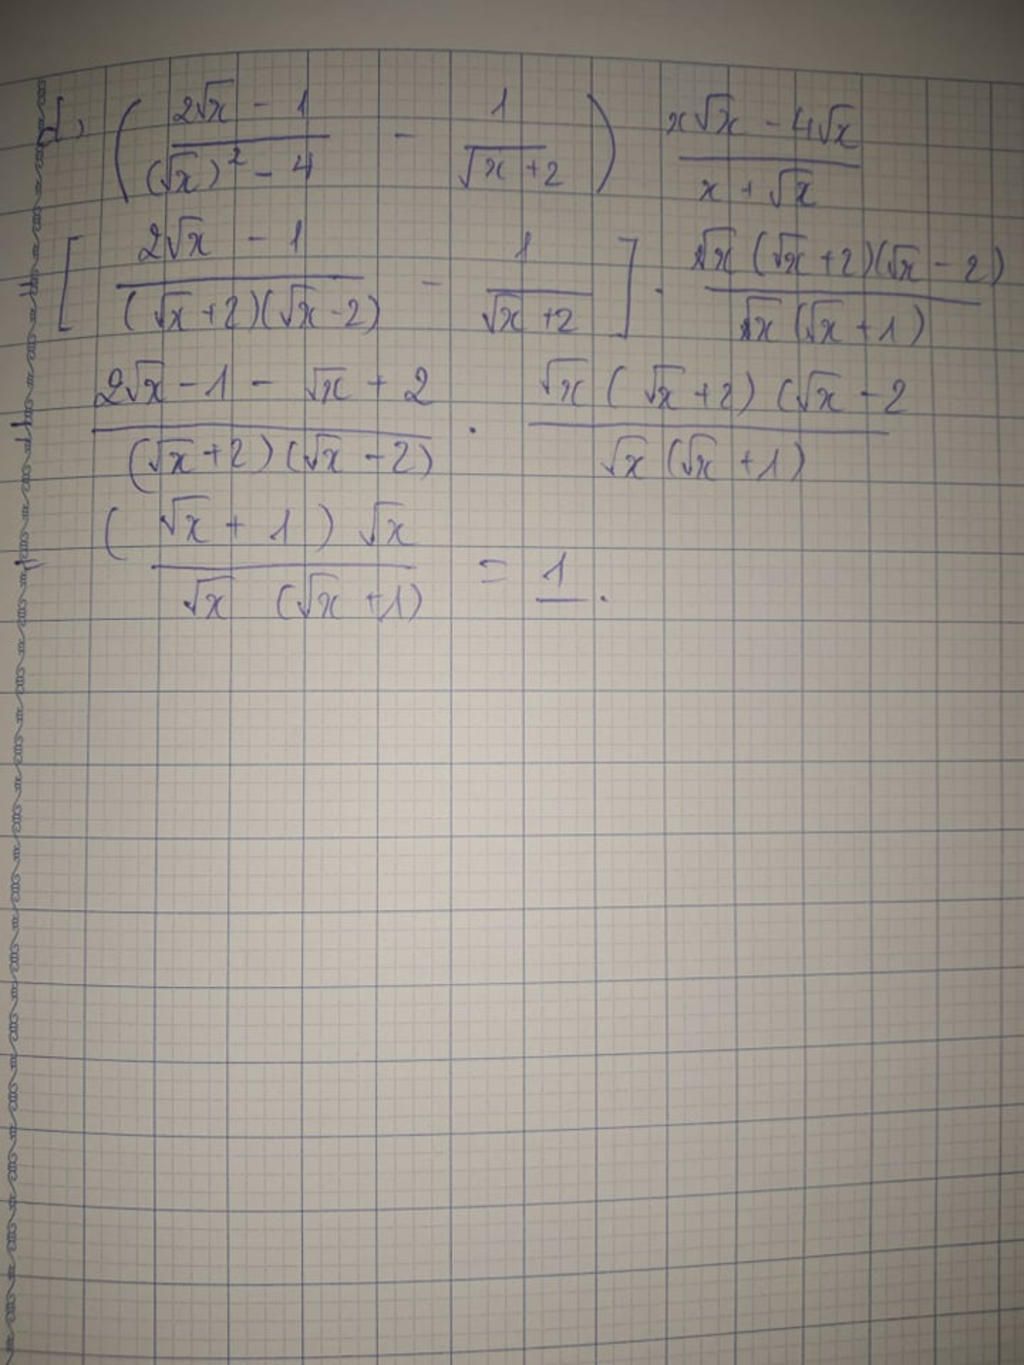 d, ( (2√x - 1)/((√x)² - 4) - 1/(√x + 2) ) (x√x - 4√x)/(x + √x)
[ (2√x - 1)/((√x + 2)(√x - 2)) - 1/(√x + 2) ] . (√x (√x + 2)(√x - 2))/(√x (√x + 1))
(2√x - 1 - √x + 2)/((√x + 2)(√x - 2)) . (√x (√x + 2) (√x - 2)/(√x (√x + 1))
((√x + 1) √x)/(√x (√x + 1)) = 1 .